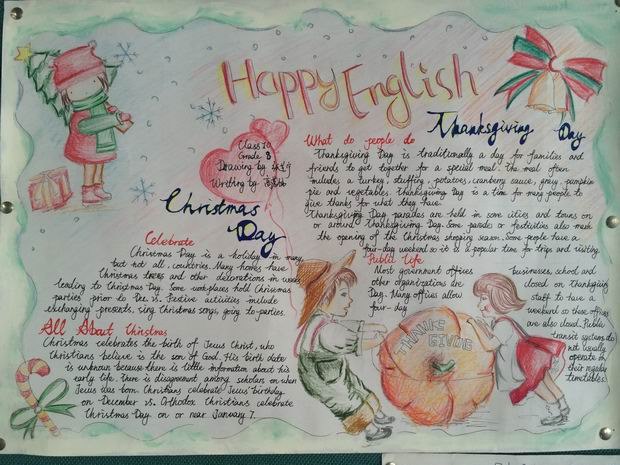 Happy English
Class 10
Grade 8
Drawing by
Writing by
Thanksgiving Day
What do people do
Thanksgiving Day is traditionally a day for families and
friends to get together for a special meal. The meal often
includes a turkey, stuffing, potatoes, cranberry sauce, gravy, pumpkin
pie and vegetables. Thanksgiving Day is a time for many people to
give thanks for what they have.
Thanksgiving Day parades are held in some cities and towns on
or around Thanksgiving Day. Some parades or festivities also mark
the opening of the Christmas shopping season. Some people have a
four-day weekend so it is a popular time for trips and visiting
Public Life
Most government offices businesses, school and
other organizations are closed on Thanksgiving
Day. Many offices allow staff to have a
four-day weekend so these offices
are also closed. Public
transit systems do
not usually
operate on
their regular
timetables.
THANKS
GIVING
Christmas
Day
Celebrate
Christmas Day is a holiday in many,
but not all, countries. Many homes have
Christmas trees and other decorations in weeks
leading to Christmas Day. Some workplaces hold Christmas
parties prior to Dec 25. Festive activities include
exchanging presents, sing Christmas songs, going to parties.
All About Christmas
Christmas celebrates the birth of Jesus Christ, who
Christians believe is the son of God. His birth date
is unknown because there is little information about his
early life. There is disagreement among scholars on when
Jesus was born. Christians celebrate Jesus' birthday
on December 25. Orthodox Christians celebrate
Christmas Day on or near January 7.